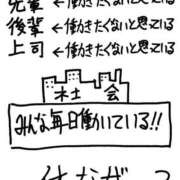 先輩 ←働きたくないと思っている
後輩 ←働きたくないと思っている
上司 ←働きたくないと思っている
社会
みんな毎日働いている!!